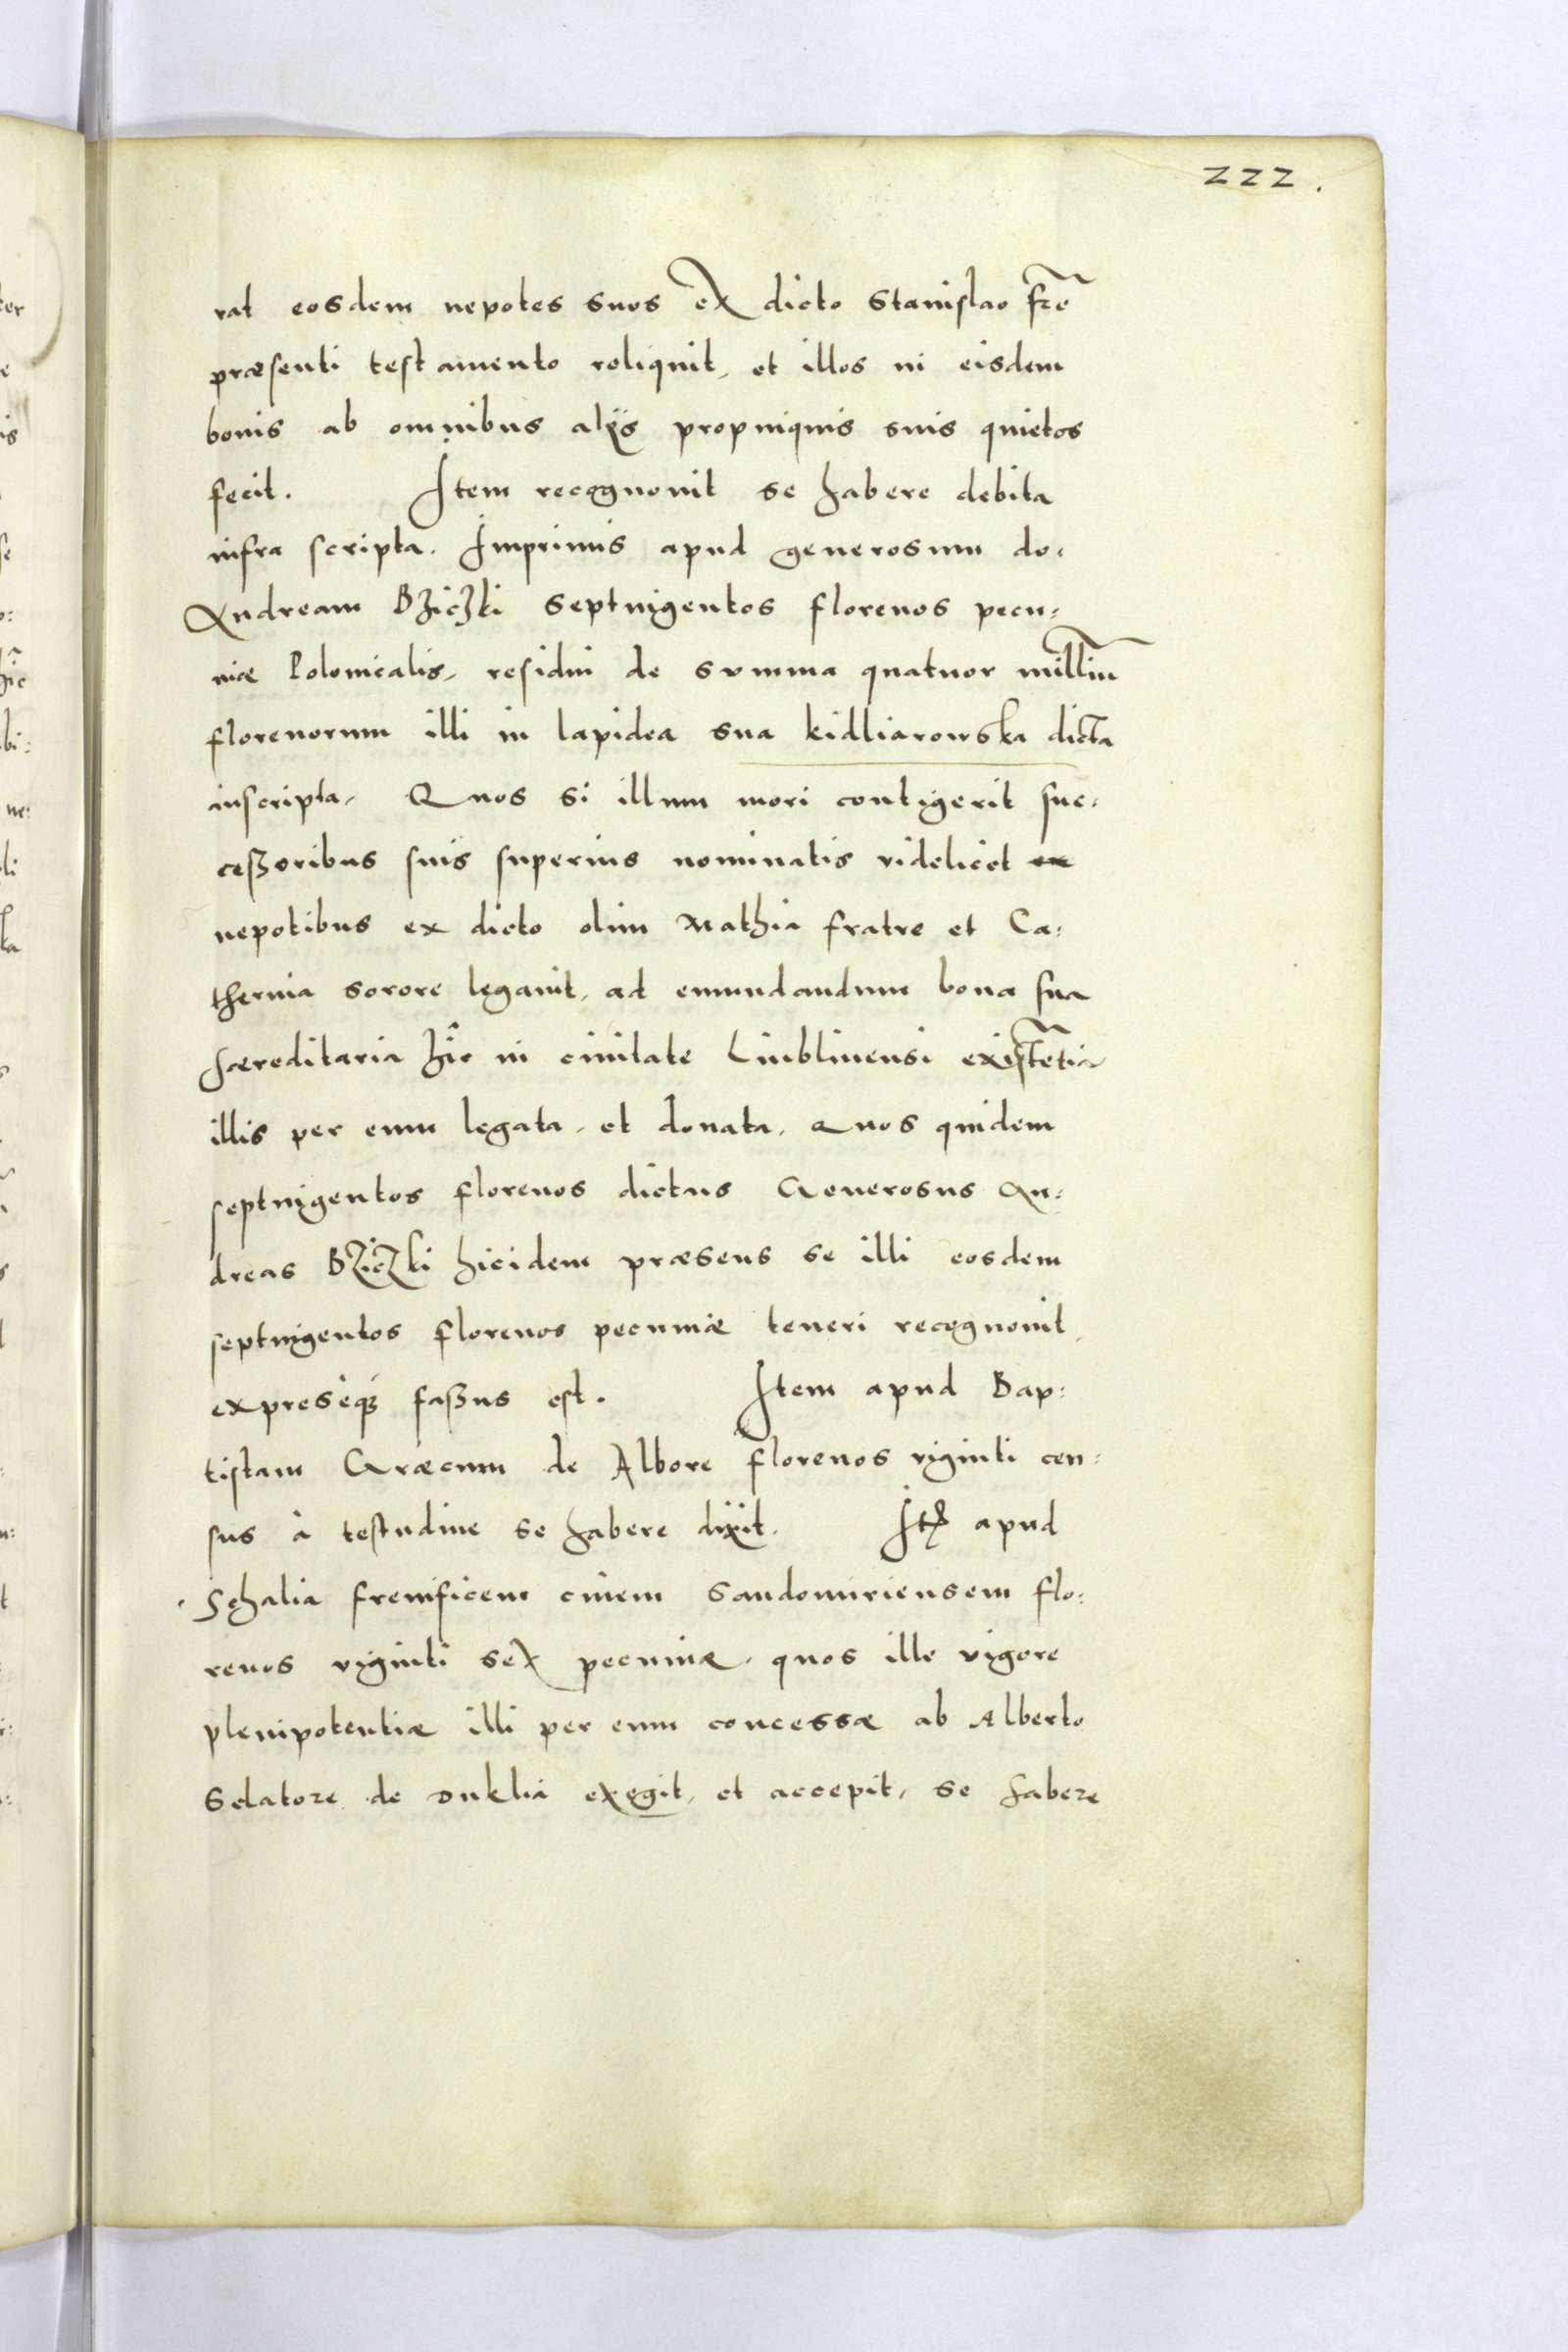 222.
rat eosdem nepotes suos ex dicto Stanislao fr̃e
præsenti testamento reliquit, et illos in eisdem
bonis ab omnibus alÿs propinquis suis quietos
fecit. Item recognouit se habere debita
infra scripta. Imprimis apud generosum do:
Andream Bziczki septuigentos florenos pecu:
niæ Polonicalis, residui de summa quatuor milliũ
florenorum illi in lapidea sua kidliarowska dicta
inscripta, Quos si illum mori contigerit suc:
ceßoribus suis superius nominatis videlicet ex
nepotibus ex dicto olim Mathia fratre et Ca:
therina sorore legauit, ad emundandum bona sua
hæreditaria hîc in ciuitate Liublinensi existẽtia
illis per eum legata, et donata, Quos quidem
septuigentos florenos dictus Generosus An:
dreas Bziczki hicidem præsens se illi eosdem
septuigentos florenos pecuniæ teneri recognouit,
expresèq₃ faßus est. Item apud Bap:
tistam Græcum de Albore florenos viginti cen:
sus à testudine se habere dixit. Itẽ apud
Schalia frenificem ciuem Sandomiriensem flo:
renos viginti sex pecuniæ, quos ille vigore
plenipotentiæ illi per eum concessæ ab Alberto
Selatore de Duklia exegit, et accepit, se habere